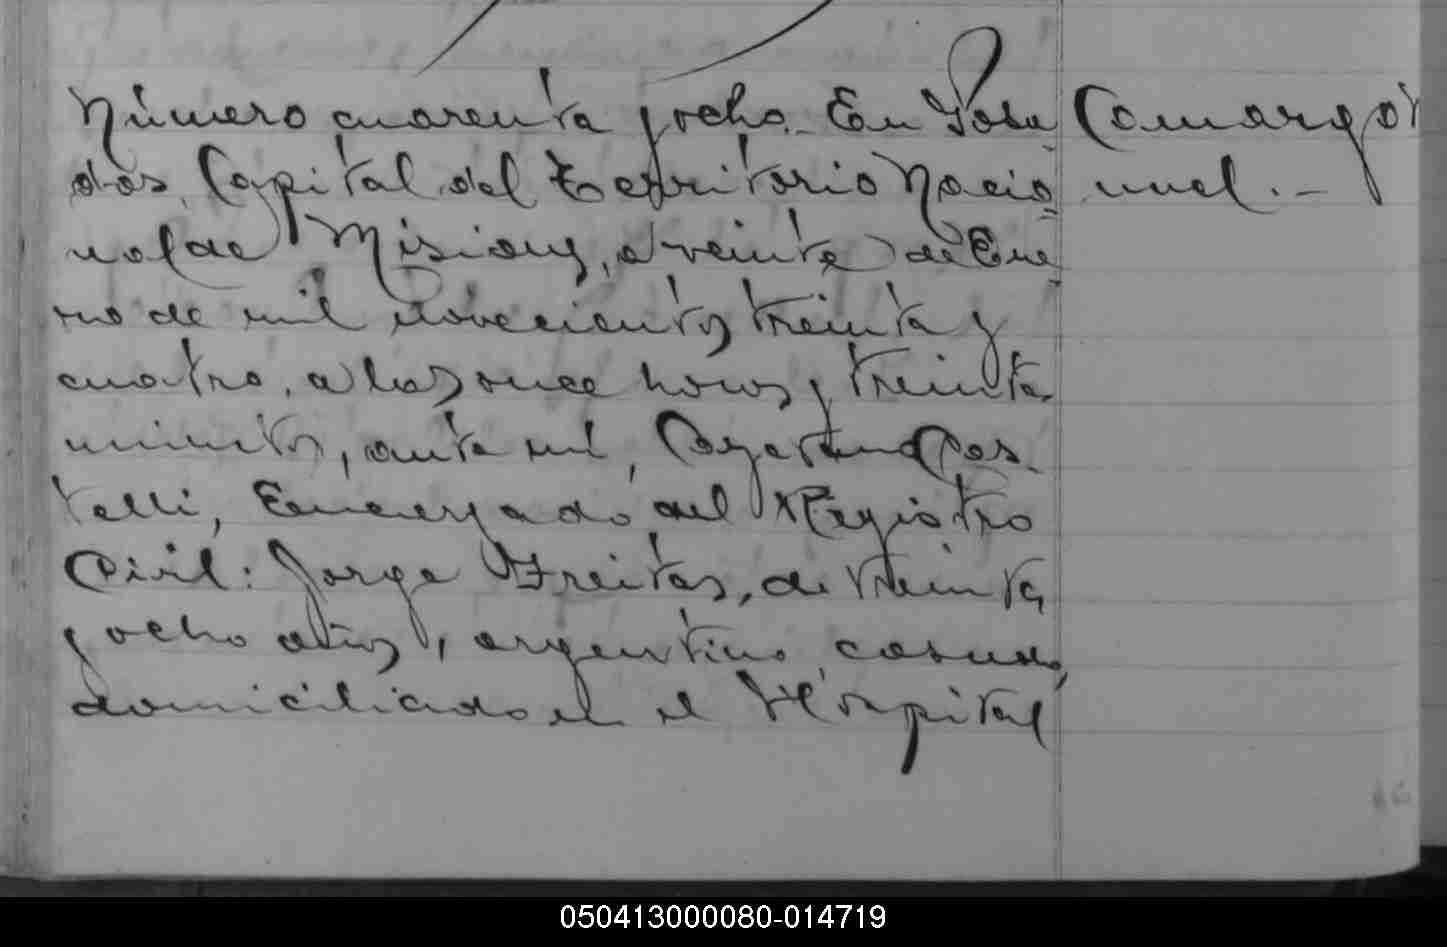 Número cuarenta y ocho.- En Posa-
das, Capital del Territorio Nacio=
nal de Misiones, a veinte de Ene-
ro de mil novecientos treinta y
cuatro, a las once horas y treinta
minutos, ante mí, Cayetano Cas-
telli, Encargado del Registro
Civil: Jorge Freitas, de treinta
y ocho años, argentino, casado,
domiciliado en el Hospital
Camargo
nuel.-
050413000080-014719